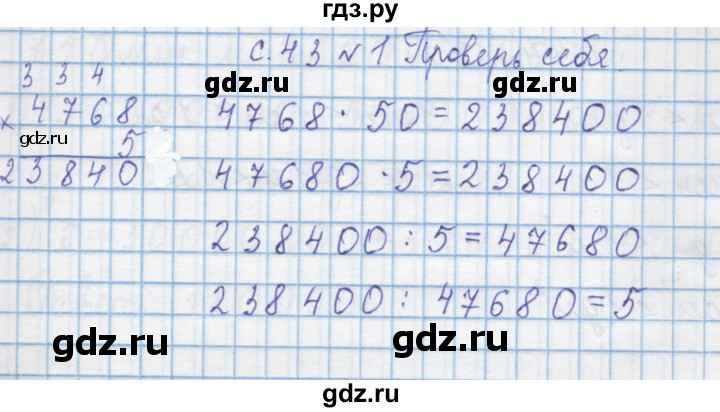 гдз.ру
с. 43 № 1 Проверь себя.
3 3 4
gdz.ru
gdz.ru
× 4768
4768 · 50 = 238400
gdz.ru
5
23840
47680 · 5 = 238400
238400 : 5 = 47680
238400 : 47680 = 5
gdz.ru
gdz.ru
gdz.ru